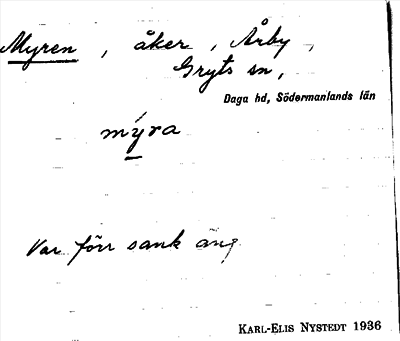 Myren, åker, Årby,
Gryts sn,
Daga hd, Södermanlands län
mýra
Var förr sank äng
KARL-ELIS NYSTEDT 1936